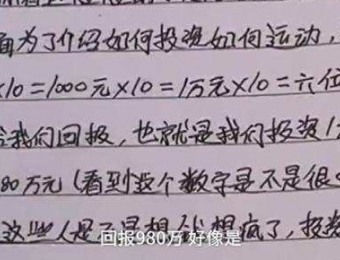 面为了介绍如何投资如何运动，
×10=1000元×10=1万元×10=六位
给我们回报，也就是我们投资1
80万元（看到这个数字是不是很
这些人是不是想钱想疯了，投资
回报980万 好像是